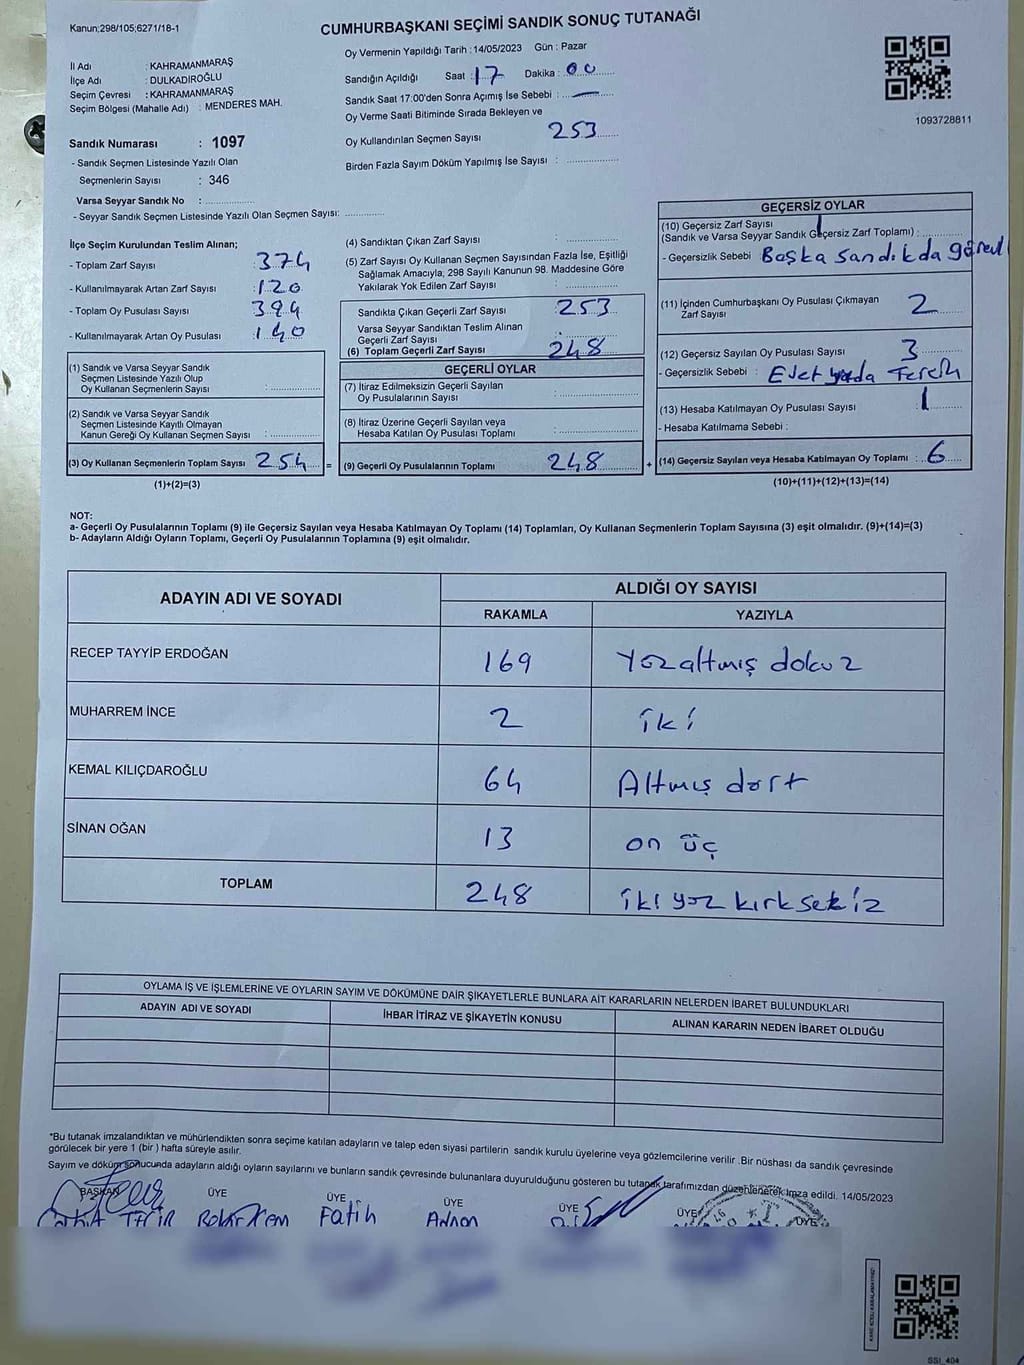 Kanun;298/105;6271/18-1
CUMHURBAŞKANI SEÇİMİ SANDIK SONUÇ TUTANAĞI
İl Adı : KAHRAMANMARAŞ
İlçe Adı : DULKADİROĞLU
Seçim Çevresi : KAHRAMANMARAŞ
Seçim Bölgesi (Mahalle Adı) : MENDERES MAH.
Sandık Numarası : 1097
- Sandık Seçmen Listesinde Yazılı Olan
Seçmenlerin Sayısı : 346
Varsa Seyyar Sandık No :
- Seyyar Sandık Seçmen Listesinde Yazılı Olan Seçmen Sayısı:
Oy Vermenin Yapıldığı Tarih : 14/05/2023 Gün : Pazar
Sandığın Açıldığı Saat : 17 Dakika : 00
Sandık Saat 17:00'den Sonra Açımış İse Sebebi : —
Oy Verme Saati Bitiminde Sırada Bekleyen ve
Oy Kullandırılan Seçmen Sayısı 253
Birden Fazla Sayım Döküm Yapılmış İse Sayısı :
1093728811
İlçe Seçim Kurulundan Teslim Alınan;
- Toplam Zarf Sayısı 374
- Kullanılmayarak Artan Zarf Sayısı : 120
- Toplam Oy Pusulası Sayısı 394
- Kullanılmayarak Artan Oy Pusulası : 140
(1) Sandık ve Varsa Seyyar Sandık
Seçmen Listesinde Yazılı Olup
Oy Kullanan Seçmenlerin Sayısı :
(2) Sandık ve Varsa Seyyar Sandık
Seçmen Listesinde Kayıtlı Olmayan
Kanun Gereği Oy Kullanan Seçmen Sayısı :
(3) Oy Kullanan Seçmenlerin Toplam Sayısı 254 =
(1)+(2)=(3)
(4) Sandıktan Çıkan Zarf Sayısı :
(5) Zarf Sayısı Oy Kullanan Seçmen Sayısından Fazla İse, Eşitliği
Sağlamak Amacıyla; 298 Sayılı Kanunun 98. Maddesine Göre
Yakılarak Yok Edilen Zarf Sayısı :
Sandıkta Çıkan Geçerli Zarf Sayısı : 253
Varsa Seyyar Sandıktan Teslim Alınan
Geçerli Zarf Sayısı :
(6) Toplam Geçerli Zarf Sayısı 248
GEÇERLİ OYLAR
(7) İtiraz Edilmeksizin Geçerli Sayılan
Oy Pusulalarının Sayısı :
(8) İtiraz Üzerine Geçerli Sayılan veya
Hesaba Katılan Oy Pusulası Toplamı :
(9) Geçerli Oy Pusulalarının Toplamı 248 +
GEÇERSİZ OYLAR
(10) Geçersiz Zarf Sayısı
(Sandık ve Varsa Seyyar Sandık Geçersiz Zarf Toplamı) : 1
- Geçersizlik Sebebi Başka sandıkda görevli
(11) İçinden Cumhurbaşkanı Oy Pusulası Çıkmayan
Zarf Sayısı 2
(12) Geçersiz Sayılan Oy Pusulası Sayısı 3
- Geçersizlik Sebebi : Evet yada Tercih
(13) Hesaba Katılmayan Oy Pusulası Sayısı : 1
- Hesaba Katılmama Sebebi :
(14) Geçersiz Sayılan veya Hesaba Katılmayan Oy Toplamı : 6
(10)+(11)+(12)+(13)=(14)
NOT:
a- Geçerli Oy Pusulalarının Toplamı (9) ile Geçersiz Sayılan veya Hesaba Katılmayan Oy Toplamı (14) Toplamları, Oy Kullanan Seçmenlerin Toplam Sayısına (3) eşit olmalıdır. (9)+(14)=(3)
b- Adayların Aldığı Oyların Toplamı, Geçerli Oy Pusulalarının Toplamına (9) eşit olmalıdır.
ADAYIN ADI VE SOYADI
ALDIĞI OY SAYISI
RAKAMLA YAZIYLA
RECEP TAYYİP ERDOĞAN 169 Yüzaltmış dokuz
MUHARREM İNCE 2 iki
KEMAL KILIÇDAROĞLU 64 Altmış dört
SİNAN OĞAN 13 on üç
TOPLAM 248 iki yüz kırk sekiz
OYLAMA İŞ VE İŞLEMLERİNE VE OYLARIN SAYIM VE DÖKÜMÜNE DAİR ŞİKAYETLERLE BUNLARA AİT KARARLARIN NELERDEN İBARET BULUNDUKLARI
ADAYIN ADI VE SOYADI İHBAR İTİRAZ VE ŞİKAYETİN KONUSU ALINAN KARARIN NEDEN İBARET OLDUĞU
*Bu tutanak imzalandıktan ve mühürlendikten sonra seçime katılan adayların ve talep eden siyasi partilerin sandık kurulu üyelerine veya gözlemcilerine verilir .Bir nüshası da sandık çevresinde
görülecek bir yere 1 (bir ) hafta süreyle asılır.
Sayım ve döküm sonucunda adayların aldığı oyların sayılarını ve bunların sandık çevresinde bulunanlara duyurulduğunu gösteren bu tutanak tarafımızdan düzenlenerek imza edildi. 14/05/2023
BAŞKAN ÜYE ÜYE ÜYE ÜYE ÜYE ÜYE
Fatih Adnan
SSI_404